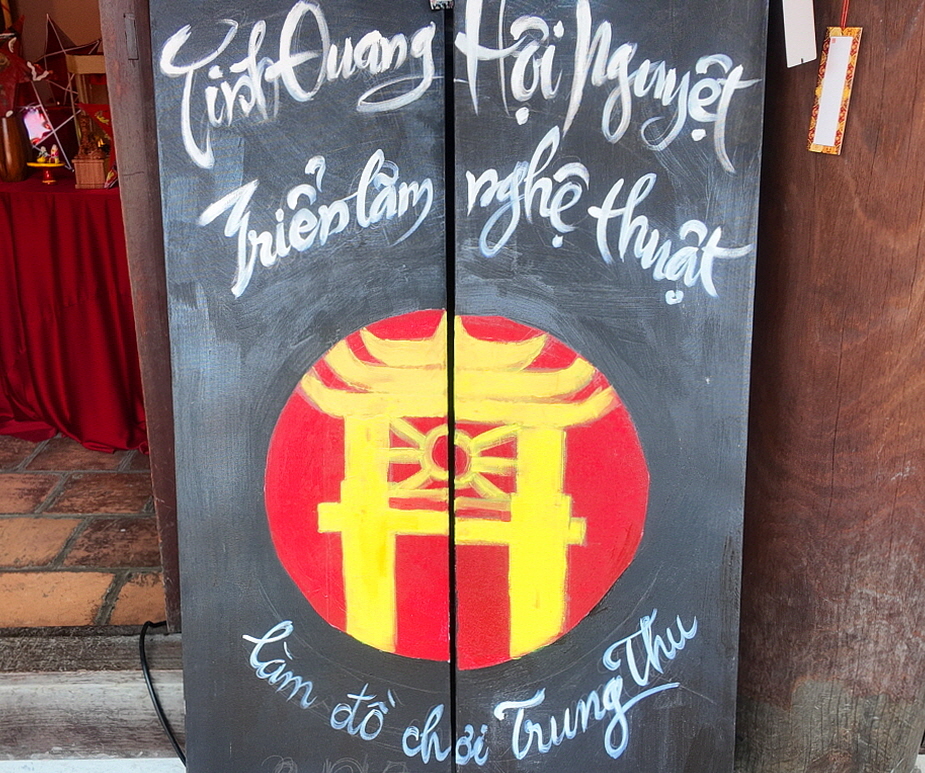 Tinh Quang Hội Nguyệt
Triển lãm nghệ thuật
làm đồ chơi Trung Thu